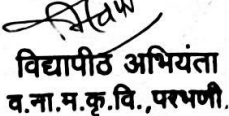 विद्यापीठ अभियंता
व.ना.म.कृ.वि.,परभणी.